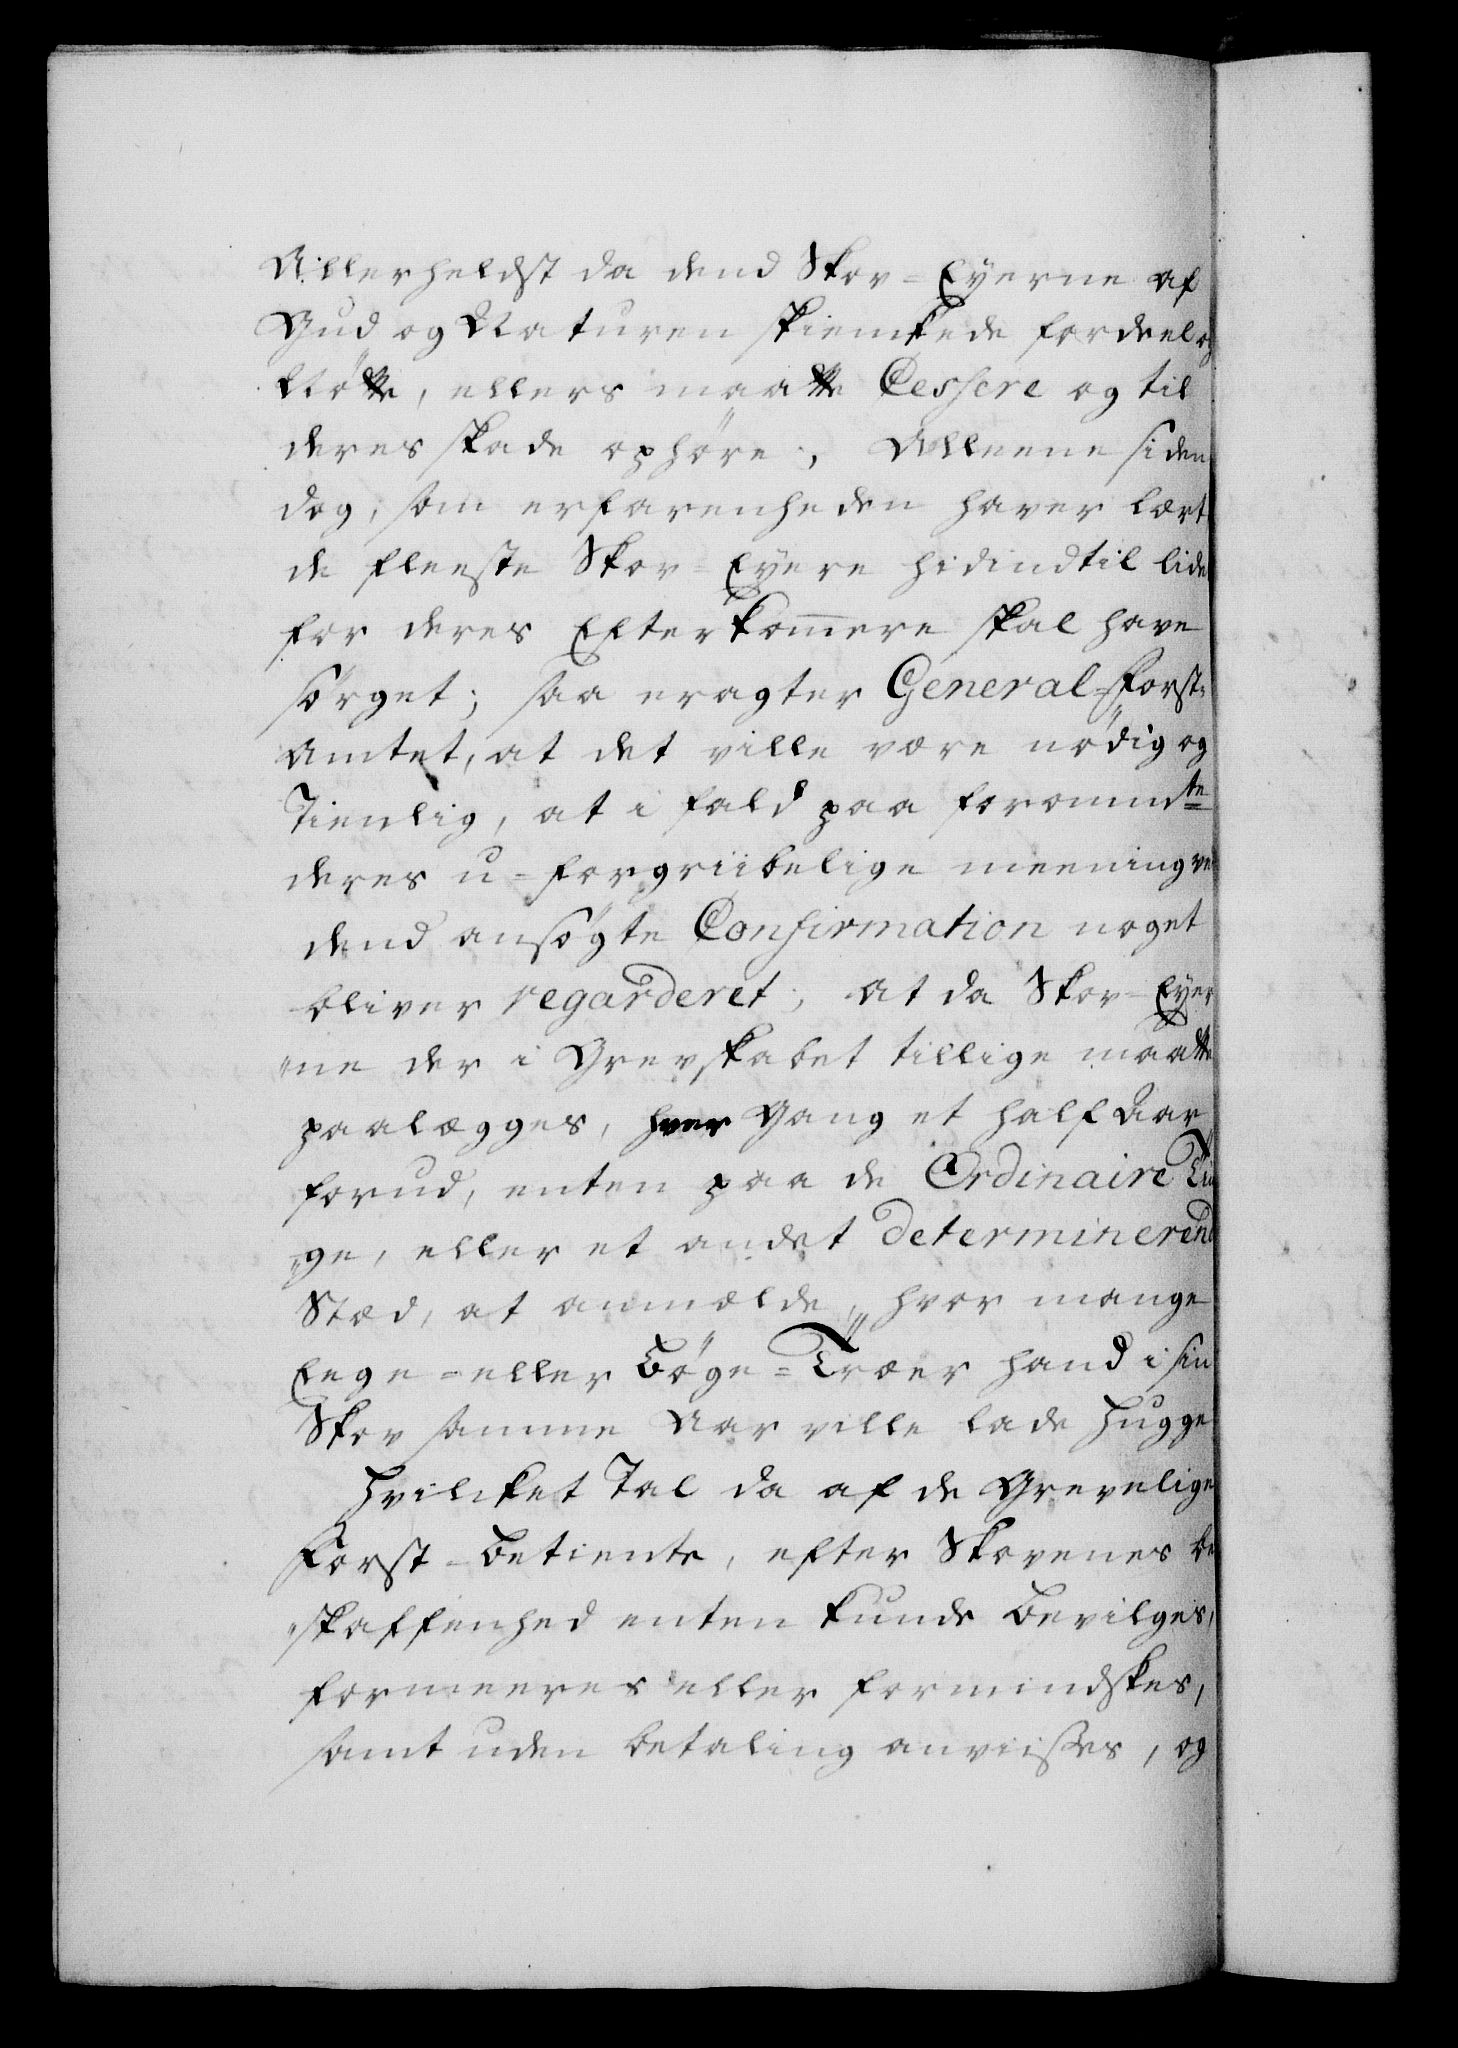 Allerheldst da dend Skov=Eyerne af
Gud og Naturen skienkede fordeel og
Nötte, ellers maatte Cessere og til
deres skade ophöre, Alleene siden
dog, som erfarenheden haver lært
de fleeste Skov=Eyere hidindtil lidet
for deres Efterkom̅ere skal have
sörget; saa eragter General=Forst=
Amtet, at det ville være nödig og
Tienlig, at i fald paa forommte
deres u=forgriibelige meening ved
dend ansögte Confirmation noget
bliver regarderet, at da Skov=Eyer
"ne der i Grevskabet tillige maatte
paalægges, hver Gang et half Aar
forud, enten paa de Ordinaire Tin
"ge, eller et andet determinerende
Stæd, at anmælde, hvor mange
Eege=eller Böge=Træer hand i sin
Skov samme Aar ville lade hugge
Hvilcket Tal da af de Grevelige
Forst=betiente, efter Skovenes be
"skaffenhed enten kunde bevilges,
formeeres eller formindskes,
samt uden betaling anviisses, og